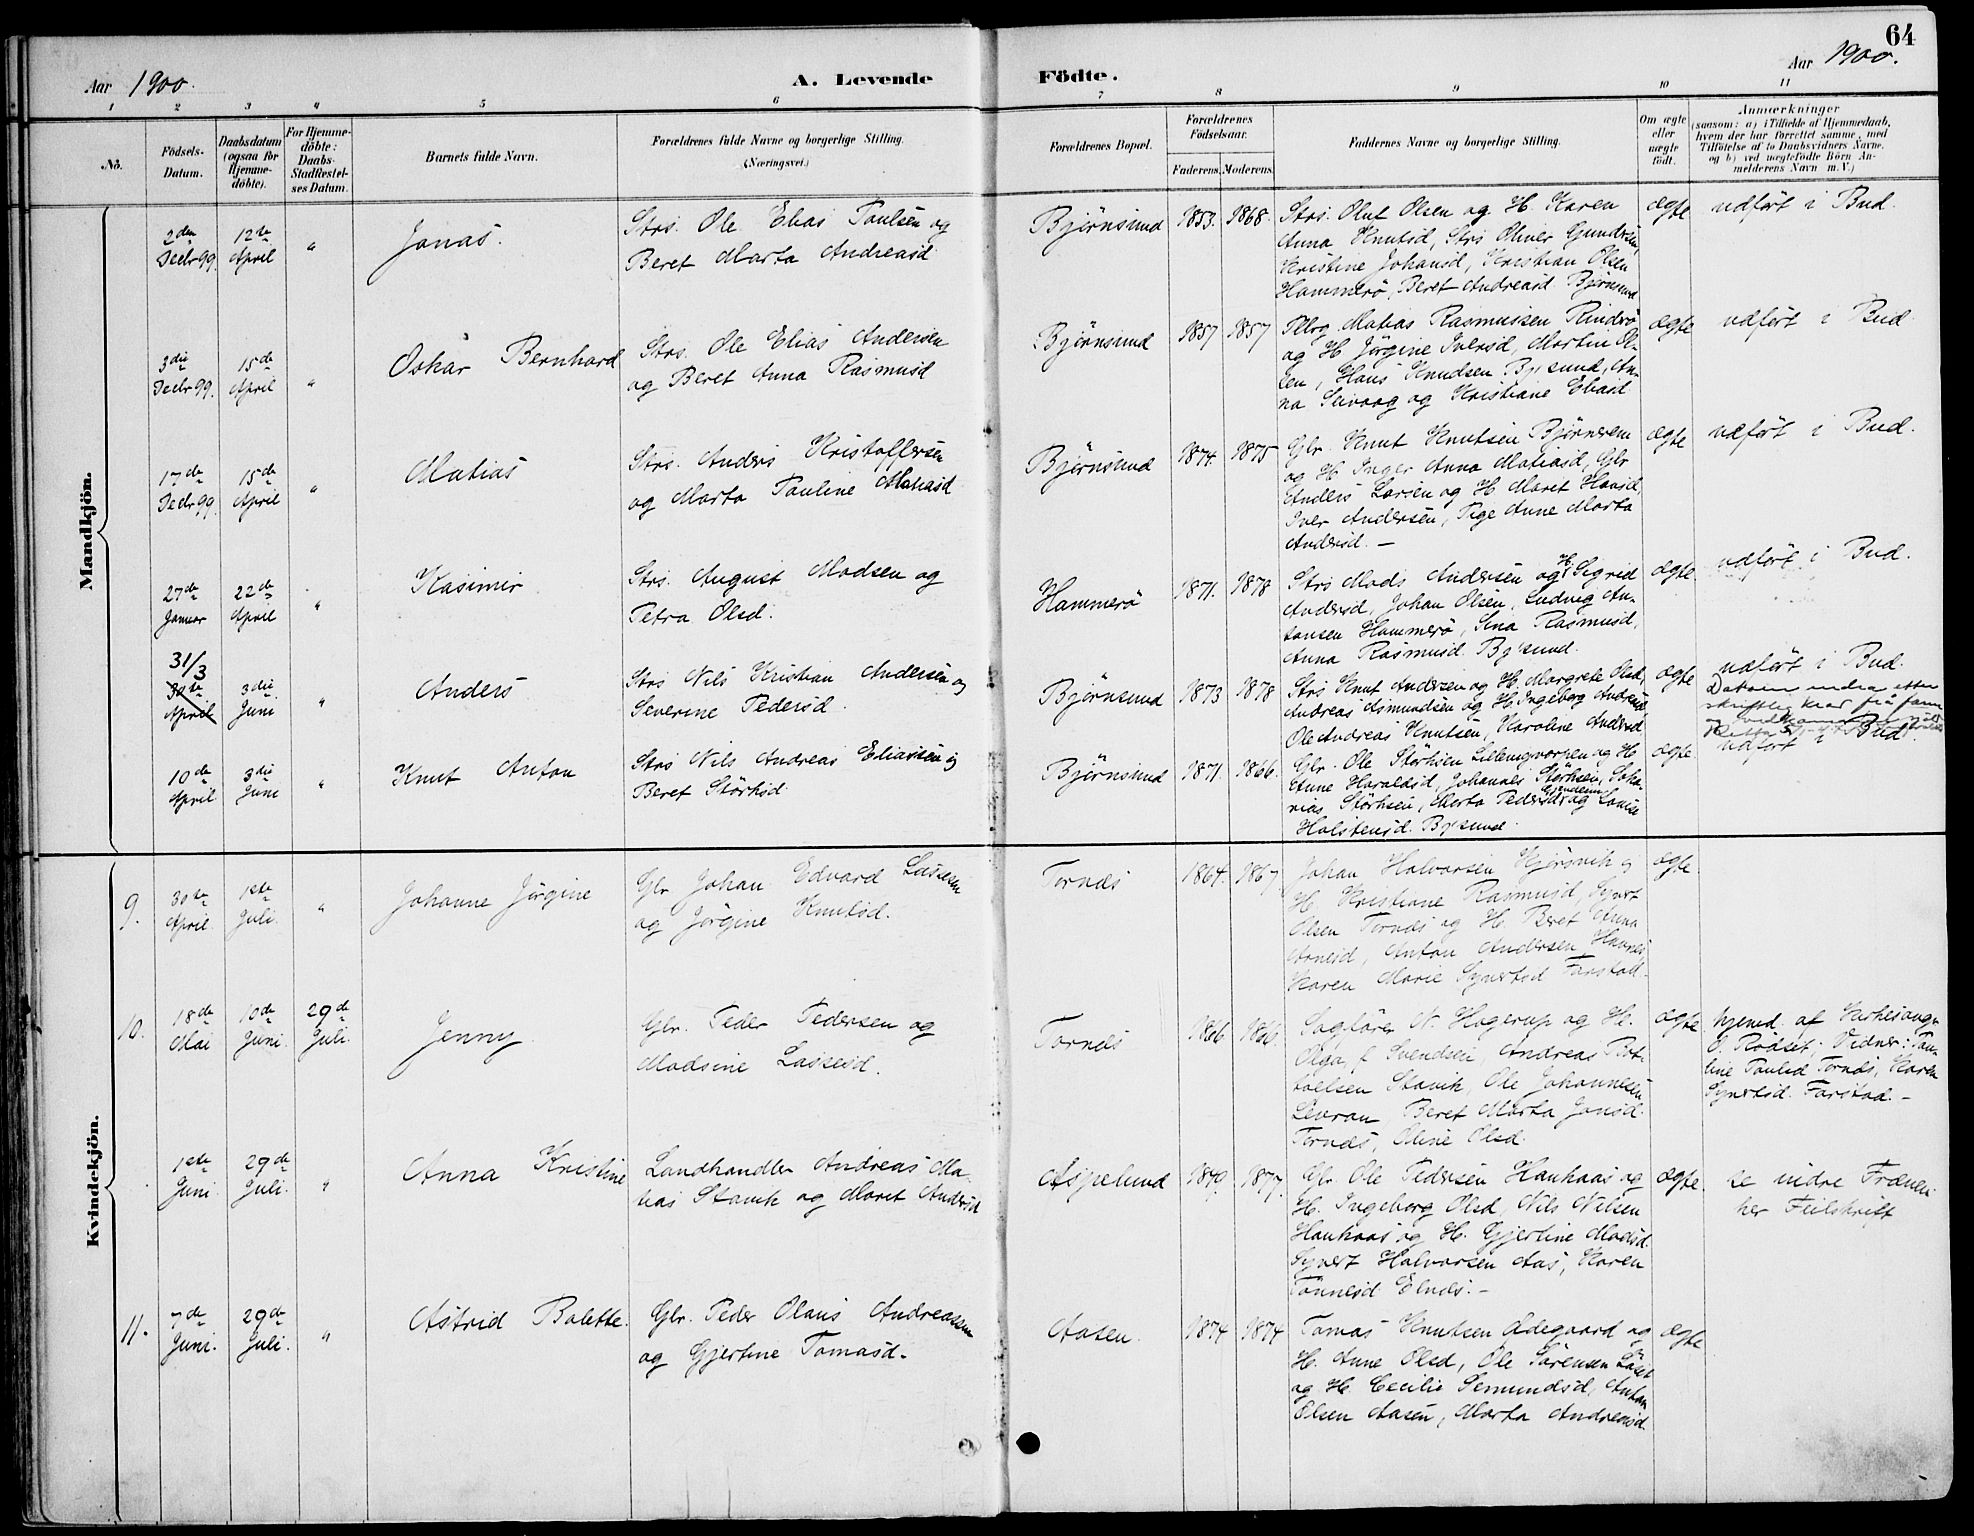 64
Aar 1900.
A. Levende Födte.
Aar 1900.
1 2 3 4 5 6 7 8 9 10 11
No.
Födsels-
Datum.
Daabsdatum
(ogsaa for
Hjemme-
döbte).
For Hjemme-
döbte:
Daabs-
Stadfestel-
ses Datum.
Barnets fulde Navn.
Forældrenes fulde Navne og borgerlige Stilling.
(Næringsvei.)
Forældrenes Bopæl.
Forældrenes
Födselsaar.
Faderens. Moderens.
Faddernes Navne og borgerlige Stilling.
Om ægte
eller
uægte
födt.
Anmærkninger
(saasom: a) i Tilfælde af Hjemmedaab,
hvem der har forrettet samme, med
Tilföielse af to Daabsvidners Navne.
og b) ved uægtefödte Börn An-
melderens Navn m. V.)
Mandkjön.
2den
Decbr 99
12te
April
"
Jonas.
Strs. Ole Elias Paulsen og
Beret Marta Andreasd
Bjørnsund
1853.
1868.
Strs. Olut Olsen og H. Karen
Anna Knutsd, Strs Oliver Gundersen,
Kristine Johansd, Kristian Olsen
Hammerö, Beret Andreasd. Bjørnsund
ægte
udført i Bud.
3die
Decbr 99.
15de
April
"
Oskar Bernhard
Strs. Ole Elias Andersen
og Beret Anna Rasmusd
Bjørnsund
1857
1857
Matias Rasmussen Rindrö
og H. Jörgine Iversd, Martin Ol-
sen, Hans Knudsen Bj.sund, An-
na Seivaag og Kristiane Eliasd
ægte
udført i Bud
17de
Decbr 99.
15de
April
"
Matias
Strs. Anders Kristoffersen
og Marta Pauline Matiasd
Bjørnsund
1874.
1875
Gbr. Knut Knutsen Bjørnerem
og H. Inger Anna Matiasd, Gbr
Anders Larsen og H. Maret Hansd,
Iver Andersen, Pige Anne Marta
Andersd. —
ægte
udført i Bud.
27de
Januar
22de
April
"
Kasimir
Strs. August Madsen og
Petra Olsd.
Hammerö
1871.
1878
Strs Mads Andersen og H. Sigrid
Andersd, Johan Olsen, Ludvig An-
tonsen Hammerö, Sina Rasmusd,
Anna Rasmusd. Bj.sund.
ægte
udført i Bud.
31/3
30te
April
3die
Juni
"
Anders
Strs Nils Kristian Andersen og
Severine Pedersd.
Bjørnsund
1873
1878
Strs Knut Andersen og H. Margrete Olsd,
Andreas Asmundsen og H. Ingeborg Andersd
Ole Andreas Knutsen, Karoline Andersd
ægte
udført i Bud.
Datoen endra etter
skriftleg krav frå
10de
April
3die
Juni
"
Knut Anton
Strs Nils Andreas Eliassen og
Beret Störksd.
Bjørnsund
1871.
1866.
Gbr. Ole Störksen Lillengvorpen og H.
Anne Haraldsd, Johannes Störksen, Joha-
nias Störksen, Marta Pedersd og Louise
Holstensd. Bj.sund.
ægte
udført i Bud.
Kvindekjön.
9.
30te
April.
1ste
Juli.
"
Johanne Jörgine
Gbr Johan Edvard Lassesen
og Jörgine Knutsd.
Tornes
1864.
1867
Johan Halvorsen Hjørsvik og
H. Kristiane Rasmusd, Syvert
Olsen Tornes og H. Beret Anna
Arnesd, Anton Andersen Havnes,
Karen Marie Syvertsd Farstad.
ægte
10.
18de
Mai
10de
Juni.
29de
Juli.
Jenny
Gbr. Peder Pedersen og
Madsine Lassesd.
Tornes
1866
1866.
Sagfører N. Hagerup og H.
Olga, f. Svendsen, Andreas Bot-
tolfsen Stavik, Ole Johannesen
Leeran, Beret Marta Jonsd.
Tornes, Oline Olsd.
ægte
hjemd. af Kirkesanger
O. Rödset; Vidner: Pau-
line Paulsd Tornes, Karen
Syvertsd. Farstad. —
1ste
Juni.
29de
Juli.
"
Anna Kristine
Landhandler Andreas Ma-
tias Stavik og Maret Andersd
Aspelund
1849.
1877.
Gbr. Ole Pedersen Haukaas og
H. Ingeborg Olsd, Nils Nilsen
Haukaas og H. Gjertine Madsd.
Syvert Halvorsen Aas, Karen
Tönnesd Elnes. —
ægte
se indre Frænen
her Feilskrift
11.
7de
Juni.
29de
Juli.
"
Astrid Bolette.
Gbr. Peder Olaus Andreassen
og Gjertine Tomasd.
Aasen.
1874
1874
Tomas Knutsen Ødegaard og
H. Anne Olsd, Ole Sörensen Löset
og H. Cecilie Semundsd, Anton
Olsen Aasen, Marta Andreasd.
ægte